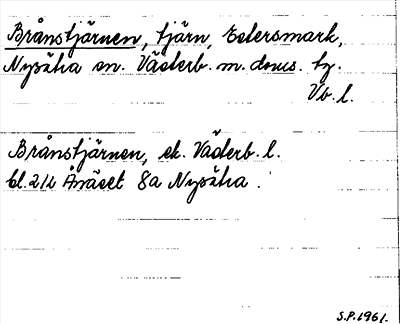 Brånstjärnen, tjärn, Estersmark,
Nysätra sn. Västerb. m. doms. ty.
Vb. l.
Brånstjärnen, ek. Västerb. l.
bl. 212 Ånäset 8a Nysätra.
S.P. 1961.